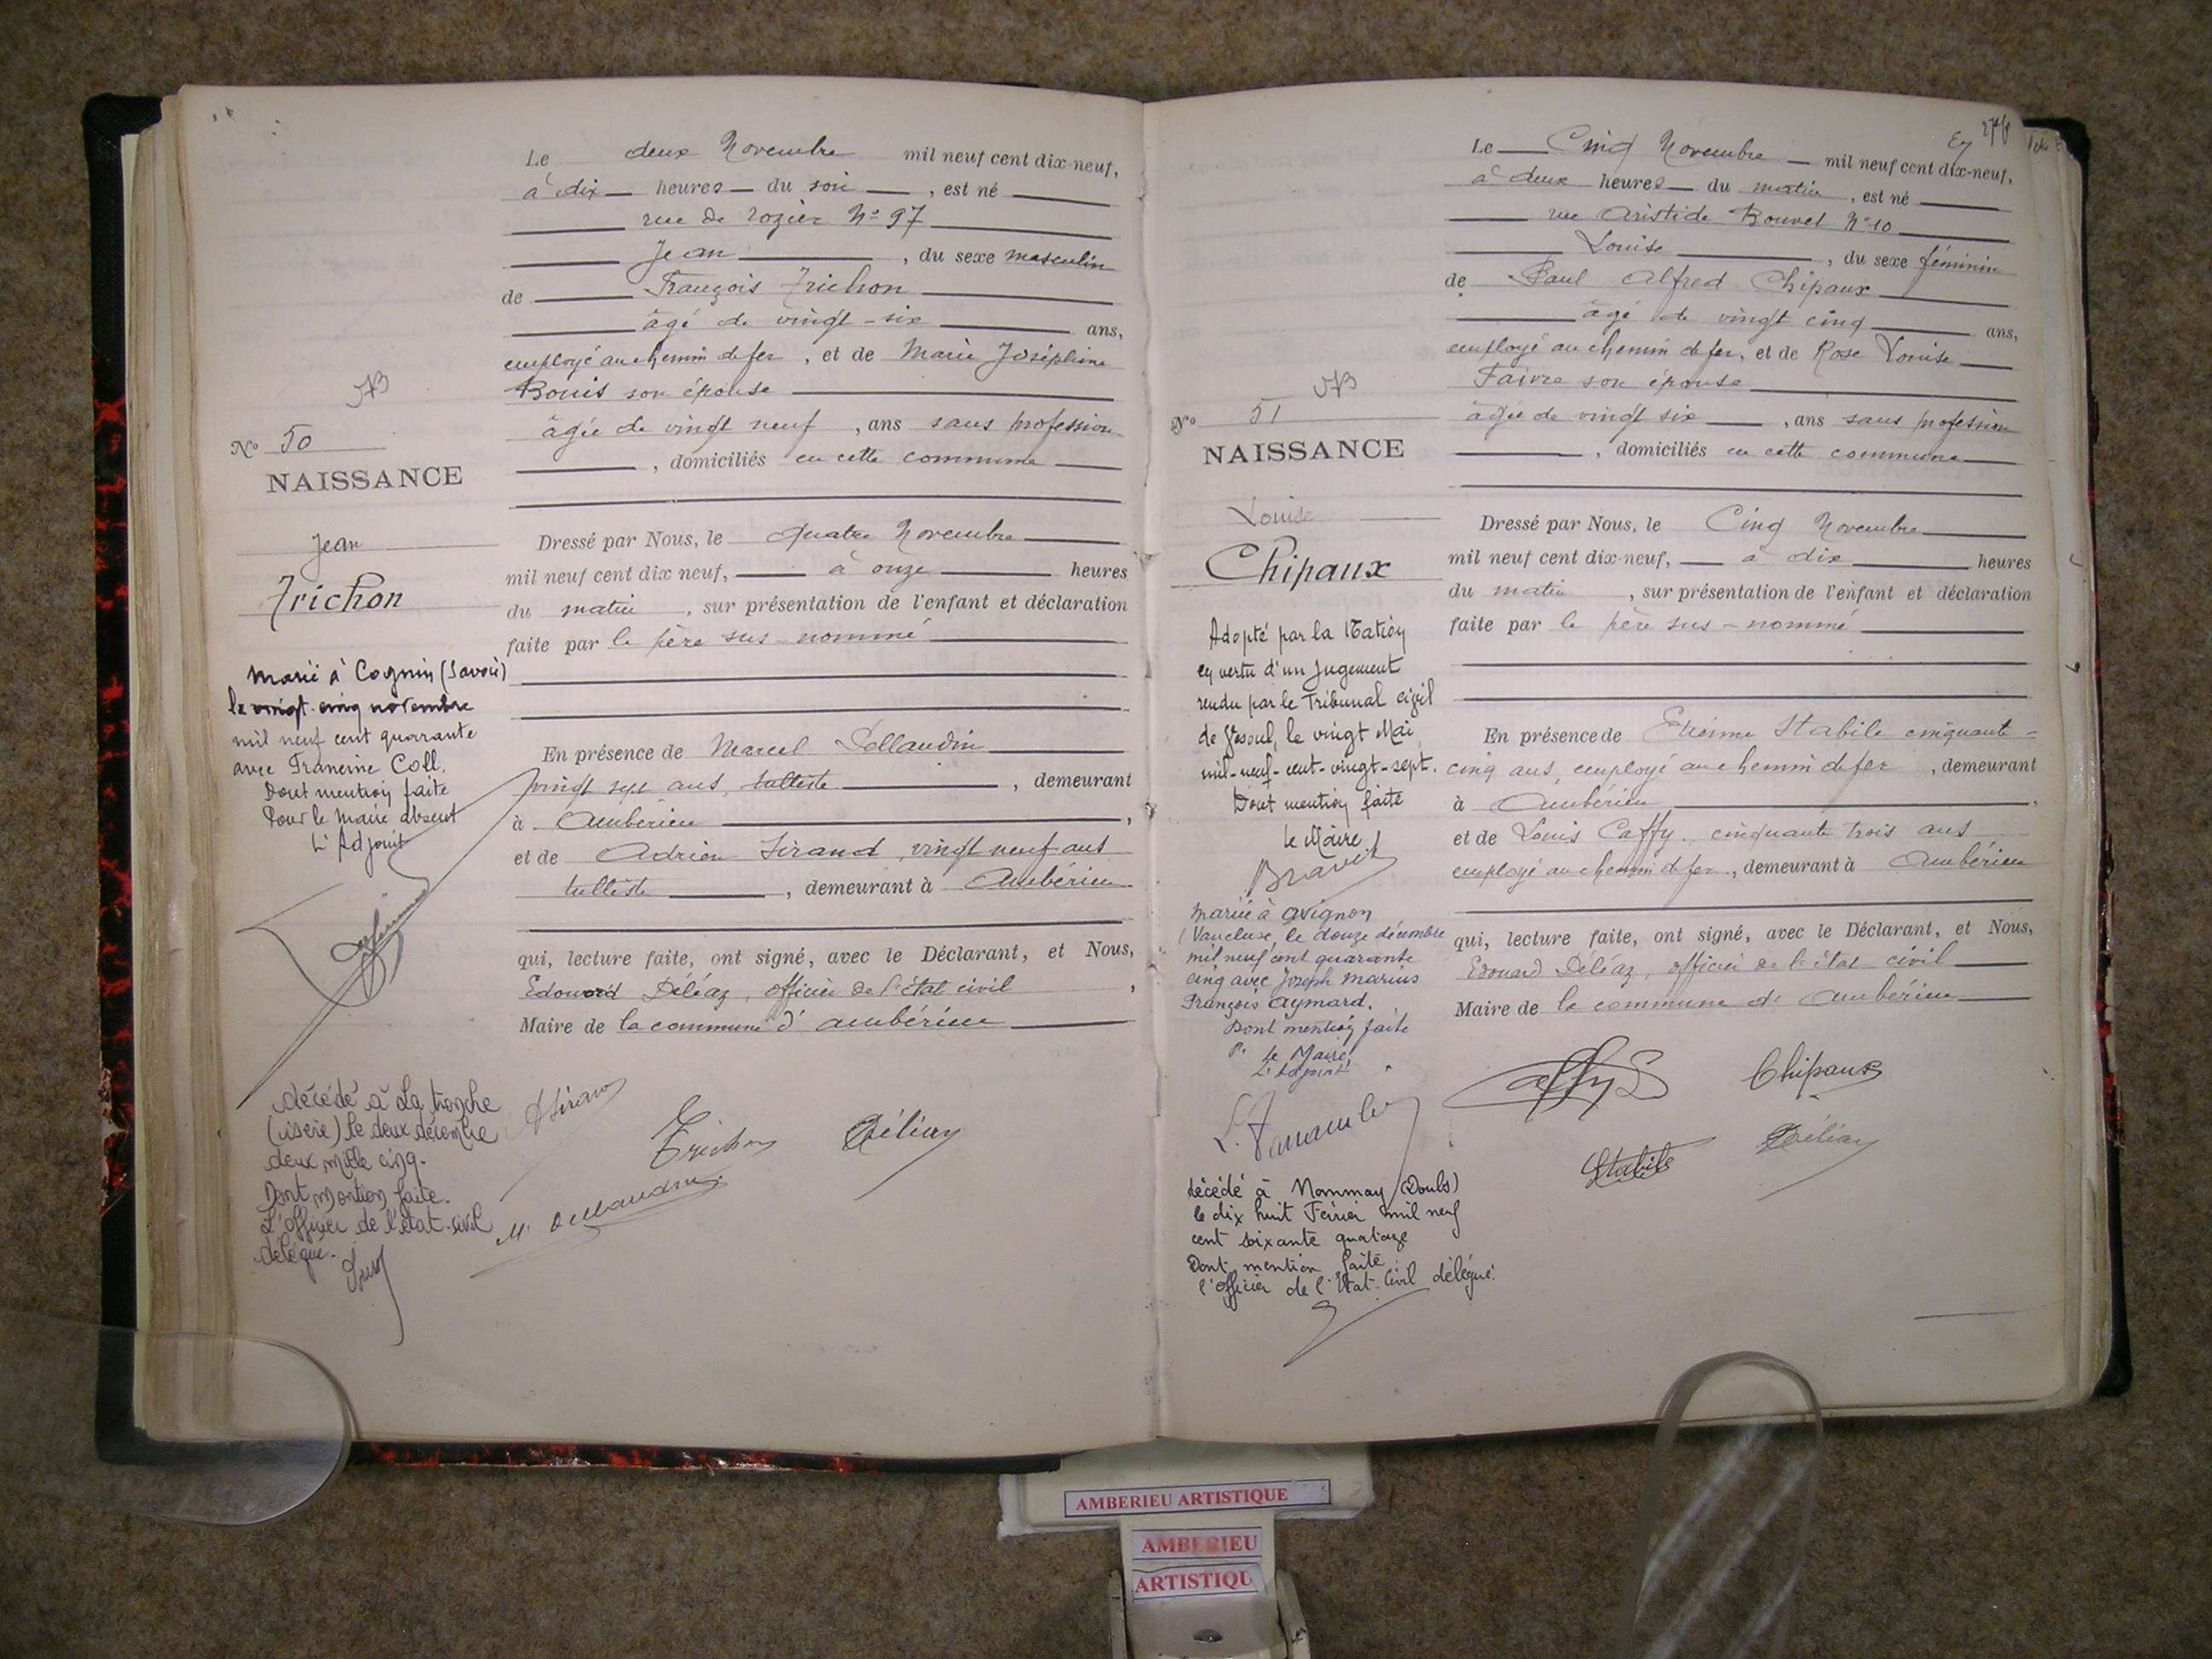 Le deux Novembre mil neuf cent dix-neuf,
à dix heures du soir, est né
rue de rozier N° 97
Jean, du sexe masculin
de François Trichon
âgé de vingt-six ans,
employé au chemin de fer, et de Marie Joséphine
Bonis son épouse
âgée de vingt neuf, ans sans profession
, domiciliés en cette commune
N° 50
NAISSANCE
Jean
Trichon
Dressé par Nous, le quatre Novembre
mil neuf cent dix neuf, à onze heures
du matin, sur présentation de l'enfant et déclaration
faite par le père sus-nommé
En présence de Marcel
vingt sept ans, tulliste, demeurant
à Ambérieu,
et de Adrien Sirand, vingt neuf ans
tulliste, demeurant à Ambérieu
qui, lecture faite, ont signé, avec le Déclarant, et Nous,
Edouard Déléaz, officier de l'état civil,
Maire de la commune d'Ambérieu
Marié à Cognin (Savoie)
le vingt-cinq novembre
mil neuf cent quarante
avec Francine Coll.
Dont mention faite
Pour le Maire absent
L'Adjoint
décédé à La Tronche
(isère) le deux décembre
deux mille cinq.
Dont mention faite.
L'officier de l'état-civil
délégué.
ASirand
Trichon
Déléaz
Le Cinq Novembre mil neuf cent dix-neuf,
à deux heures du matin, est né
rue Aristide Bouvet N° 10
Louise, du sexe féminin
de Paul Alfred Chipaux
âgé de vingt cinq ans,
employé au chemin de fer, et de Rose Louise
Faivre son épouse
âgée de vingt six, ans sans profession
, domiciliés en cette commune
N° 51
NAISSANCE
Louise
Chipaux
Dressé par Nous, le Cinq Novembre
mil neuf cent dix-neuf, à dix heures
du matin, sur présentation de l'enfant et déclaration
faite par le père sus-nommé
En présence de Etienne Stabile cinquante-
cinq ans, employé au chemin de fer, demeurant
à Ambérieu,
et de Louis Caffy, cinquante trois ans
employé au chemin de fer, demeurant à Ambérieu
qui, lecture faite, ont signé, avec le Déclarant, et Nous,
Edouard Déléaz, officier de l'état civil
Maire de la commune de Ambérieu
Adopté par la Nation
en vertu d'un Jugement
rendu par le Tribunal civil
de Vesoul, le vingt Mai
mil-neuf-cent-vingt-sept.
Dont mention faite
le Maire
Mariée à Avignon
(Vaucluse, le douze décembre
mil neuf cent quarante
cinq avec Joseph Marius
François Aymard.
Dont mention faite
P. le Maire
L'Adjoint
décédé à Nommay (Doubs)
le dix huit Février mil neuf
cent soixante quatorze
Dont mention faite
l'officier de l'Etat-Civil délégué.
Caffy L
Chipaux
Stabile
Déléaz
AMBERIEU ARTISTIQUE
AMBERIEU
ARTISTIQU